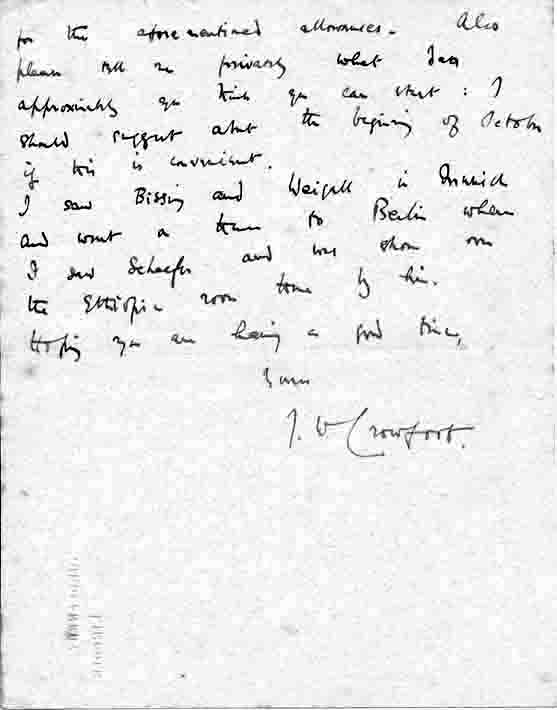 for the aforementioned allowances. Also
please tell me precisely what day
approximately you think you can start : I
should suggest about the beginning of October
if this is convenient.
I saw Bissing and Weigall in Munich
and went on thence to Berlin where
I saw Schaefer and was shown over
the Ethiopian room there by him.
Hoping you are having a good time,
Yours
J. W. Crowfoot.